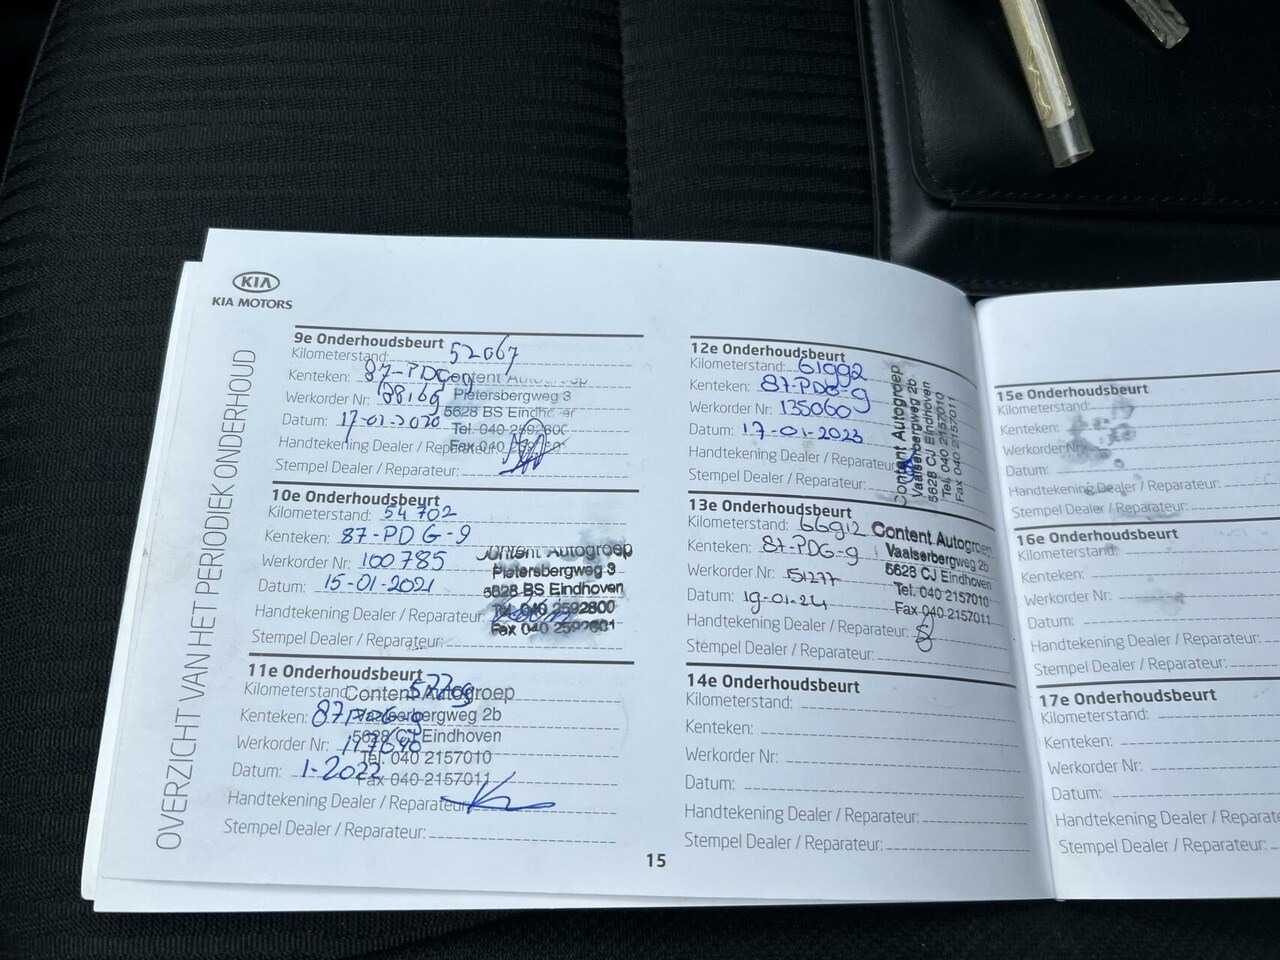 KIA
KIA MOTORS
OVERZICHT VAN HET PERIODIEK ONDERHOUD
9e Onderhoudsbeurt
Kilometerstand: 52067
Kenteken: 87-PDG-9
Werkorder Nr: 88169
Datum: 17-01-2020
Handtekening Dealer / Reparateur:
Stempel Dealer / Reparateur:
Content Autogroep
Pietersbergweg 3
5628 BS Eindhoven
Tel. 040-2592800
Fax 040
10e Onderhoudsbeurt
Kilometerstand: 54702
Kenteken: 87-PDG-9
Werkorder Nr: 100785
Datum: 15-01-2021
Handtekening Dealer / Reparateur:
Stempel Dealer / Reparateur:
Content Autogroep
Pietersbergweg 3
5628 BS Eindhoven
Tel. 040 2592800
Fax 040 2592801
11e Onderhoudsbeurt
Kilometerstand:
Kenteken: 87PDG9
Werkorder Nr: 117640
Datum: 1-2022
Handtekening Dealer / Reparateur:
Stempel Dealer / Reparateur:
Content Autogroep
Vaalserbergweg 2b
5628 CJ Eindhoven
Tel. 040 2157010
Fax 040 2157011
12e Onderhoudsbeurt
Kilometerstand: 61992
Kenteken: 87-PDG-9
Werkorder Nr: 135060
Datum: 17-01-2023
Handtekening Dealer / Reparateur:
Stempel Dealer / Reparateur:
Content Autogroep
Vaalserbergweg 2b
5628 CJ Eindhoven
Tel. 040 2157010
Fax 040 2157011
13e Onderhoudsbeurt
Kilometerstand: 66912
Kenteken: 87-PDG-9
Werkorder Nr: 151277
Datum: 19-01-24
Handtekening Dealer / Reparateur:
Stempel Dealer / Reparateur:
Content Autogroep
Vaalserbergweg 2b
5628 CJ Eindhoven
Tel. 040 2157010
Fax 040 2157011
14e Onderhoudsbeurt
Kilometerstand:
Kenteken:
Werkorder Nr:
Datum:
Handtekening Dealer / Reparateur:
Stempel Dealer / Reparateur:
15
15e Onderhoudsbeurt
Kilometerstand:
Kenteken:
Werkorder Nr:
Datum:
Handtekening Dealer / Reparateur:
Stempel Dealer / Reparateur:
16e Onderhoudsbeurt
Kilometerstand:
Kenteken:
Werkorder Nr:
Datum:
Handtekening Dealer / Reparateur:
Stempel Dealer / Reparateur:
17e Onderhoudsbeurt
Kilometerstand:
Kenteken:
Werkorder Nr:
Datum:
Handtekening Dealer / Reparate
Stempel Dealer / Reparateur: